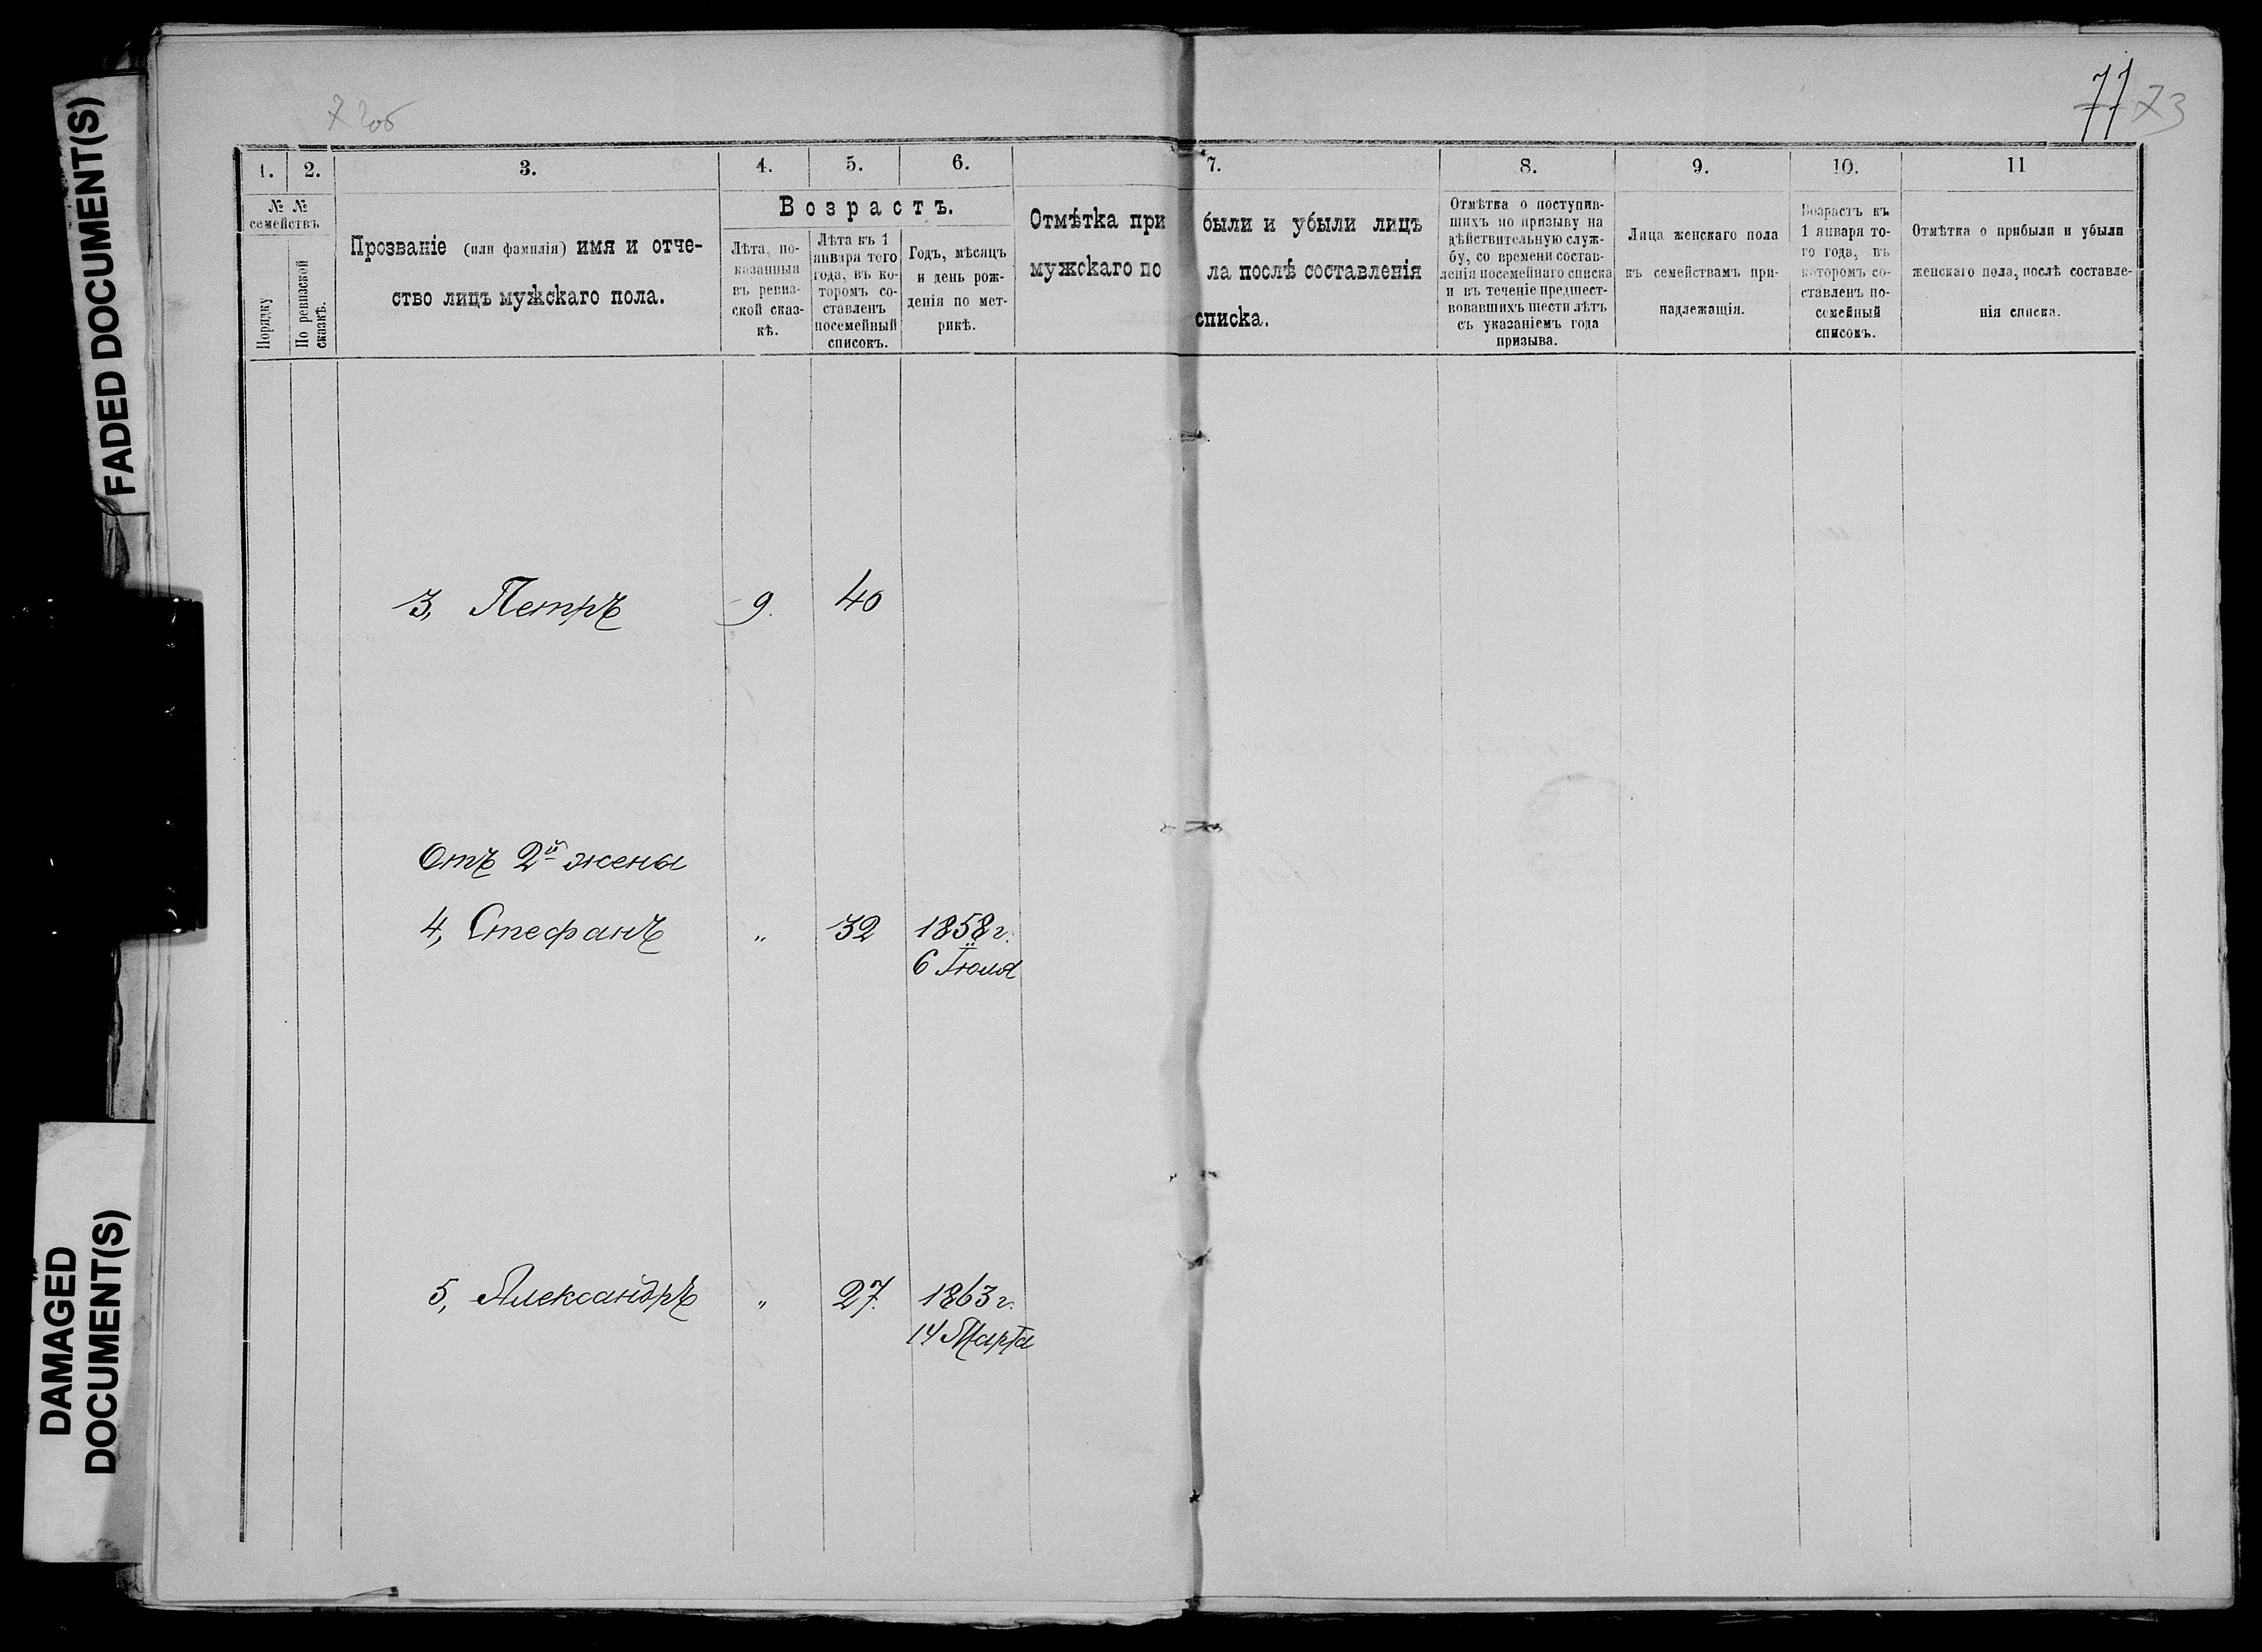 FADED DOCUMENT(S)
DAMAGED
DOCUMENT(S)
72об
71 73
1. 2. 3. 4. 5. 6. 7. 8. 9. 10. 11
№ №
семействъ
Порядку
По ревизской
сказкѣ.
Прозваніе (или фамилія) имя и отче-
ство лицъ мужскаго пола.
Возрастъ.
Лѣта, по-
казанныя
въ ревиз-
ской сказ-
кѣ.
Лѣта къ 1
января того
года, въ ко-
торомъ со-
ставленъ
посемейный
списокъ.
Годъ, мѣсяцъ
и день рож-
денія по мет-
рикѣ.
Отмѣтка при были и убыли лицъ
мужскаго по ла послѣ составленія
списка.
Отмѣтка о поступив-
шихъ по призыву на
дѣйствительную служ-
бу, со времени состав-
ленія посемейнаго списка
и въ теченіе предшест-
вовавшихъ шести лѣтъ
съ указаніемъ года
призыва.
Лица женскаго пола
къ семействамъ при-
надлежащія.
Возрастъ къ
1 января то-
го года, въ
которомъ со-
ставленъ по-
семейный
списокъ.
Отмѣтка о прибыли и убыли
женскаго пола, послѣ составле-
нія списка.
3, Петръ 9. 40
Отъ 2й жены
4, Стефанъ " 32 1858 г.
6 Іюля
5, Александръ " 27. 1863 г.
14 Марта